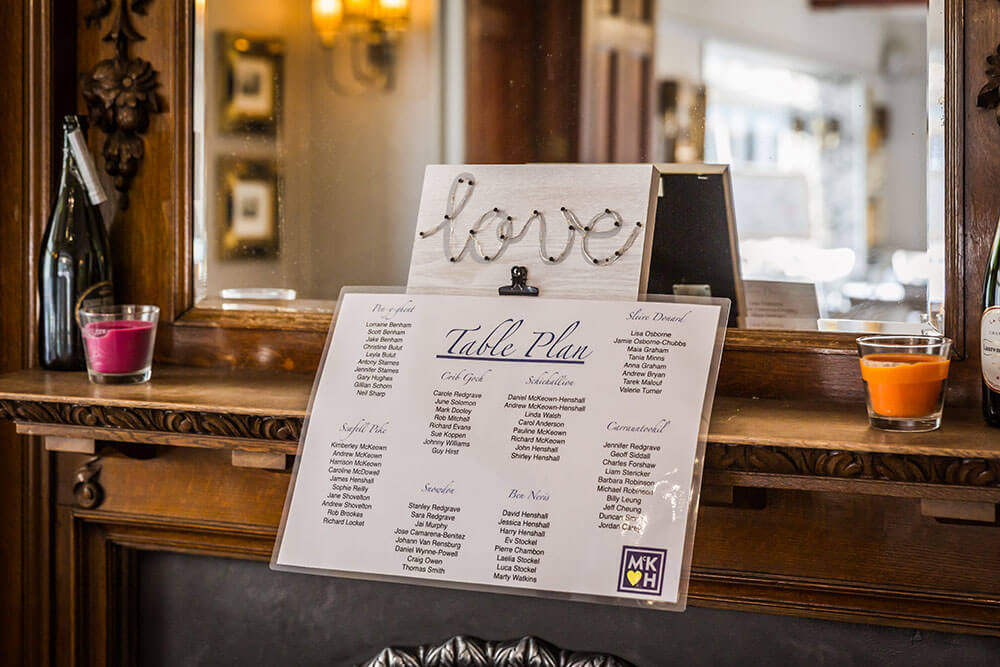 love
Table Plan
Pen-y-ghent
Lorraine Benham
Scott Benham
Jake Benham
Christine Bulut
Leyla Bulut
Antony Starnes
Jennifer Starnes
Gary Hughes
Gillian Schorn
Neil Sharp
Scafell Pike
Kimberley McKeown
Andrew McKeown
Harrison McKeown
Caroline McDowell
James Henshall
Sophie Reilly
Jane Shovelton
Andrew Shovelton
Rob Brookes
Richard Locket
Crib Goch
Carole Redgrave
June Solomon
Mark Dooley
Rob Mitchell
Richard Evans
Sue Koppen
Johnny Williams
Guy Hirst
Snowdon
Stanley Redgrave
Sara Redgrave
Jai Murphy
Jose Camarena-Benitez
Johann Van Rensburg
Daniel Wynne-Powell
Craig Owen
Thomas Smith
Schiehallion
Daniel McKeown-Henshall
Andrew McKeown-Henshall
Linda Walsh
Carol Anderson
Pauline McKeown
Richard McKeown
John Henshall
Shirley Henshall
Ben Nevis
David Henshall
Jessica Henshall
Harry Henshall
Ev Stockel
Pierre Chambon
Laelia Stockel
Luca Stockel
Marty Watkins
Slieve Donard
Lisa Osborne
Jamie Osborne-Chubbs
Maia Graham
Tania Minns
Anna Graham
Andrew Bryan
Tarek Malouf
Valerie Turner
Carrauntoohil
Jennifer Redgrave
Geoff Siddall
Charles Forshaw
Liam Stericker
Barbara Robinson
Michael Robinson
Billy Leung
Jeff Cheung
Duncan
Jordan
McK
H